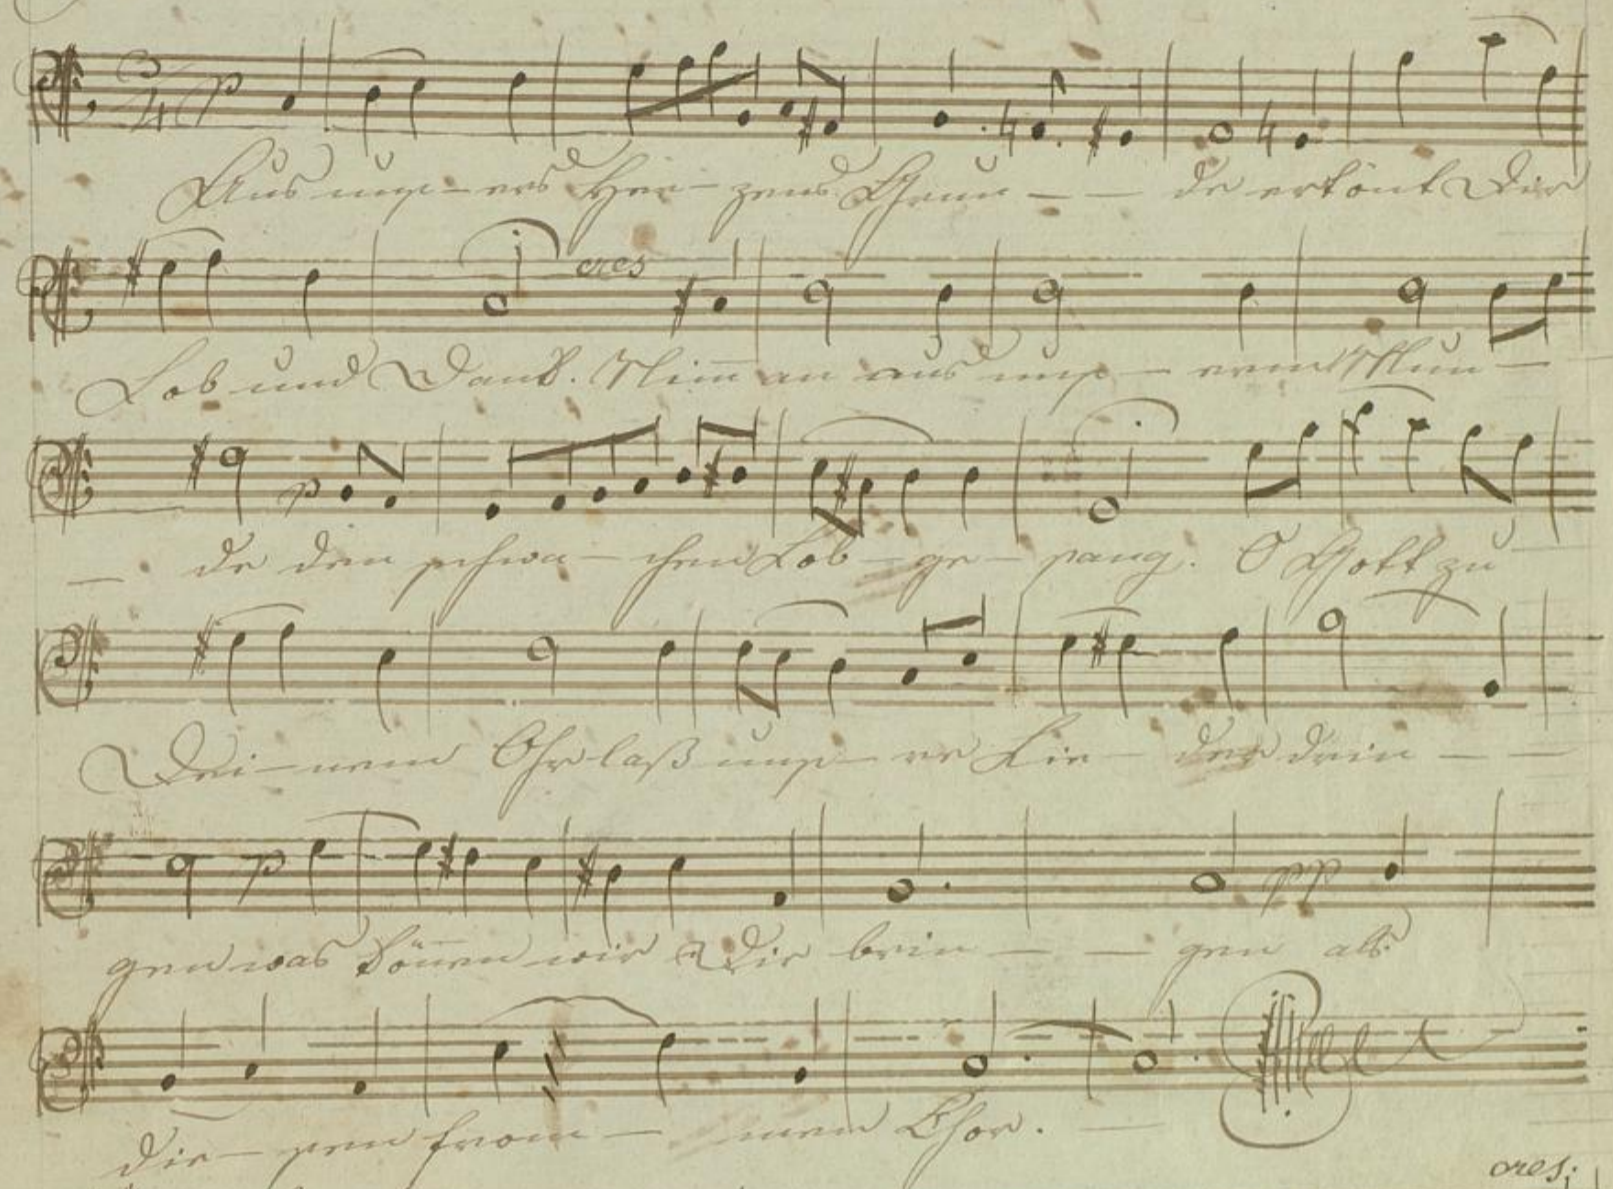 3/4 p
Aus uns-ers Her-zens Grun - - de ertönt Dir
cres
Lob und Dank. Nim̅ an aus uns - erm Mun -
p
- de den schwa - chen Lob - ge - sang. O Gott zu
Dei - nem Ohr laß uns - re Lie - der drin - -
p pp
gen was kön̅en wir Dir brin - - gen als
die - sen from - men Chor. -
cres: